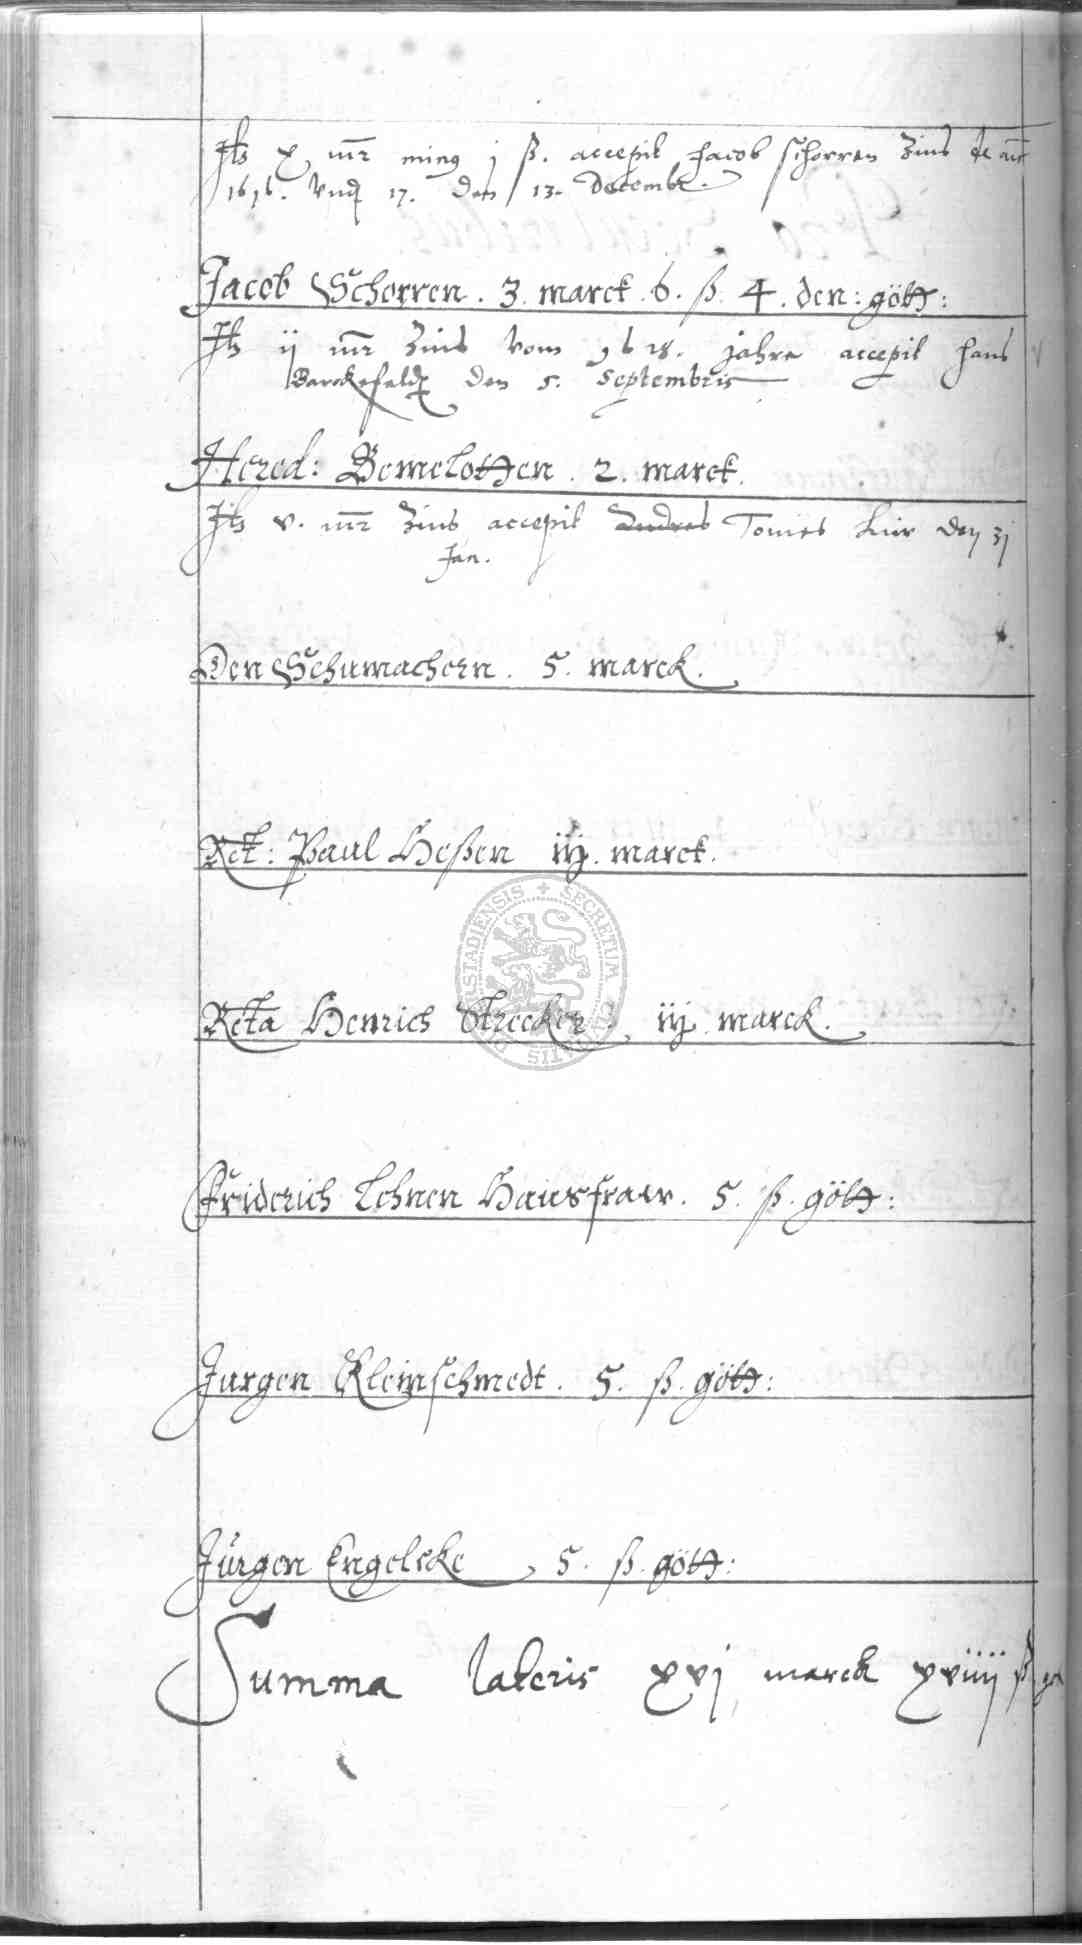 Jtz x mr ming j ß. accepit Jacob Schorren Zins de anni
1616. Vnd 17. den 13. Decembr.
Jacob Schorren . 3 . marck . 6 . ß . 4 . den : gött :
Jtz ij mr Zins vom 1618. jahre accepit Hans
Barckefeldt den 5. Septembris
Hered : Bemelotten . 2 . marck .
Jtz v . mr Zins accepit Andres Tonies den 3j
Jan .
Den Schumachern . 5 . marck .
Rct : Paul Heßen iij . marck .
Rcta Henrich Strecker . iij marck .
SECRETUM
Friderich Lehnen Hausfraw . 5 . ß . gött :
Jurgen Kleinschmedt . 5 . ß . gött :
Jürgen Engelcke 5 . ß . gött :
Summa lateris xvj marck xviiij ß